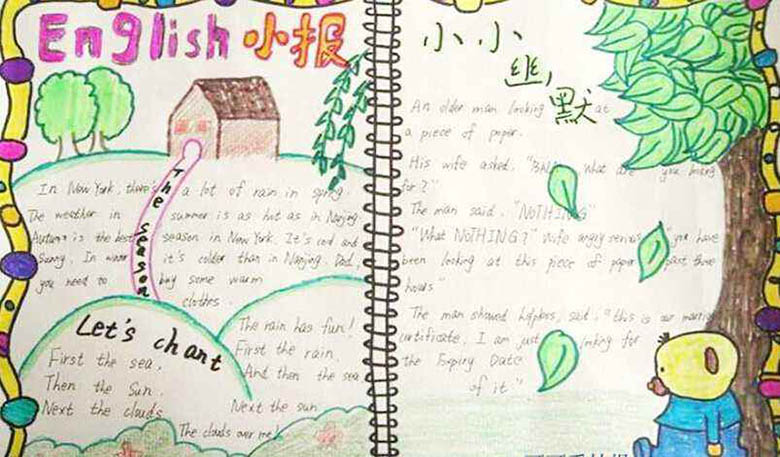 English 小报
In New York, there's a lot of rain in spring.
The weather in summer is as hot as in Nanjing.
Autumn is the best season in New York. It's cool and
Sunny. In winter it's colder than in Nanjing. Dad,
you need to buy some warm
clothes.
The season
Let's chant
First the sea,
Then the Sun.
Next the clouds
The rain has fun!
First the rain.
And then the sea
Next the sun
The clouds over me!
小小
幽默
An older man looking at
a piece of paper.
His wife asked, " What are you looking
for?"
The man said, "NoTHING"
"What NoTHING?" Wife angry you have
been looking at this piece of paper past three
hours"
The man showed said, "this is our
certificate, I am just looking for
the Expiry Date
of it"